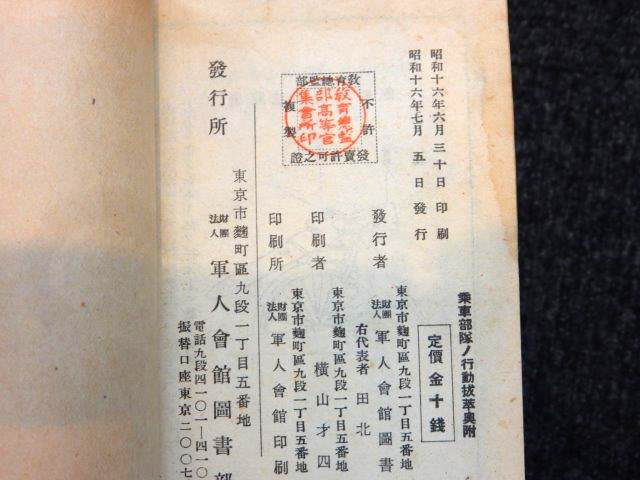 乘車部隊ノ行動拔萃奧附
定價金十錢
昭和十六年六月三十日印刷
昭和十六年七月五日發行
教育總監部
不許
複製
發賣許可之證
教育總監
部高等官
集會所印
發行者
東京市麴町區九段一丁目五番地
財團法人 軍人會館圖書
右代表者 田北
印刷者
東京市麴町區九段一丁目五番地
橫山才四
印刷所
東京市麴町區九段一丁目五番地
財團法人 軍人會館印刷
發行所
東京市麴町區九段一丁目五番地
財團法人 軍人會館圖書部
電話九段四一〇一—四一〇
振替口座東京二〇〇七